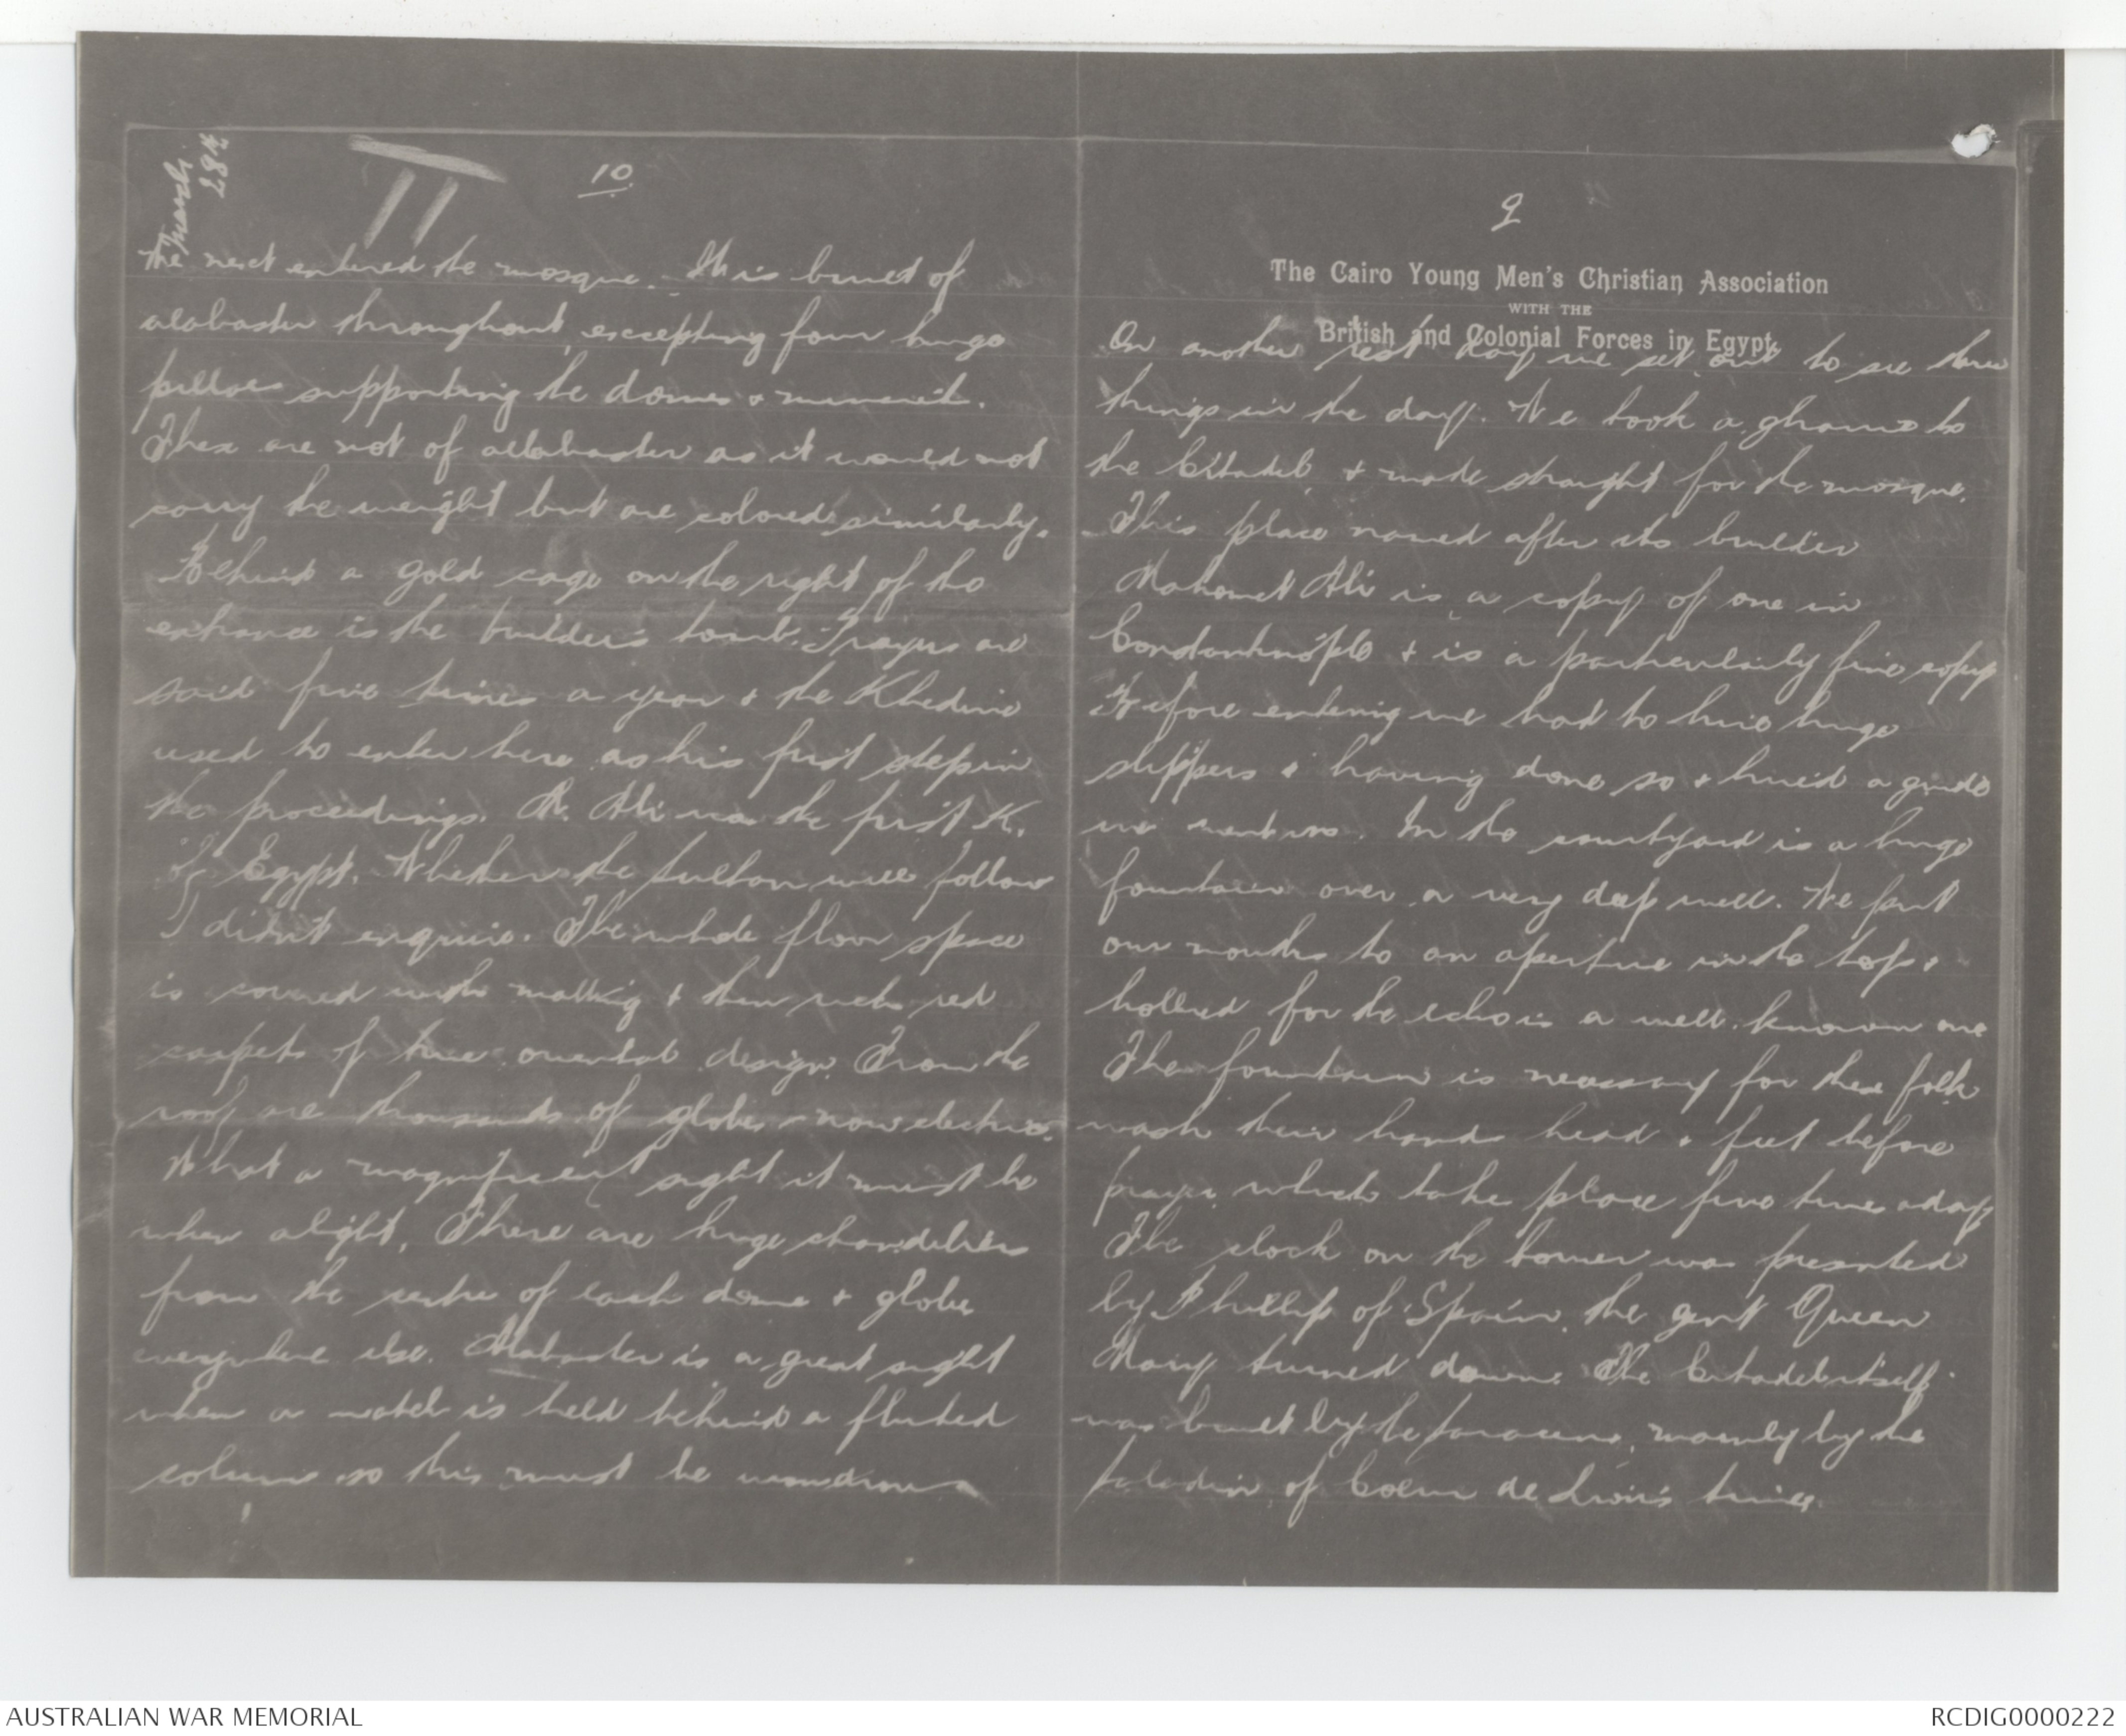 March
28th
II
10
We next entered the mosque. It is built of
alabaster throughout, excepting four huge
pillars supporting the domes & minarets.
These are not of allabaster as it would not
carry the weight but are colored similarly.
Behind a gold cage on the right of the
entrance is the builders tomb. Prayers are
said five times a year & the Khedive
used to enter here as his first step in
the proceedings. M. Ali was the first K.
of Egypt. Whether the Sultan will follow
I didn't enquire. The whole floor space
is covered with matting & then rich red
carpets of true oriental design. From the
roof are thousands of globes - now electric.
What a magnificent sight it must be
when alight. There are huge chandeliers
from the centre of each dome & globes
everywhere else. Alabaster is a great sight
when a match is held behind a fluted
column so this must be wondrous
9
The Cairo Young Men's Christian Association
WITH THE
British and Colonial Forces in Egypt.
On another rest day we set out to see three
things in the day. We took a gharrie to
the Citadel, & made straight for the mosque.
This place named after its builder
Mahomet Ali is a copy of one in
Constantinople & is a particularly fine copy
Before entering we had to hire huge
slippers & having done so & hired a guide
we went in. In the courtyard is a huge
fountain over a very deep well. We put
our mouths to an aperture in the top &
hollered for the echo is a well known one
The fountain is necessary for these folk
wash their hands head & feet before
prayer which take place five times a day
The clock on the tower was presented
by Phillip of Spain, the gent Queen
Mary turned down. The Citadel itself
was built by the Saracens, mainly by the
Saladin of Coeur de Lion's times.
AUSTRALIAN WAR MEMORIAL
RCDIG0000222